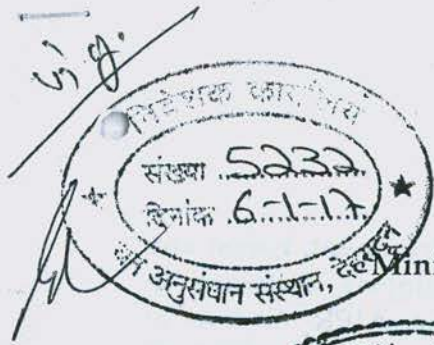 निदेशक कार्यालय
संख्या 5232
दिनांक 6-1-17
वन अनुसंधान संस्थान, देहरादून
Mini